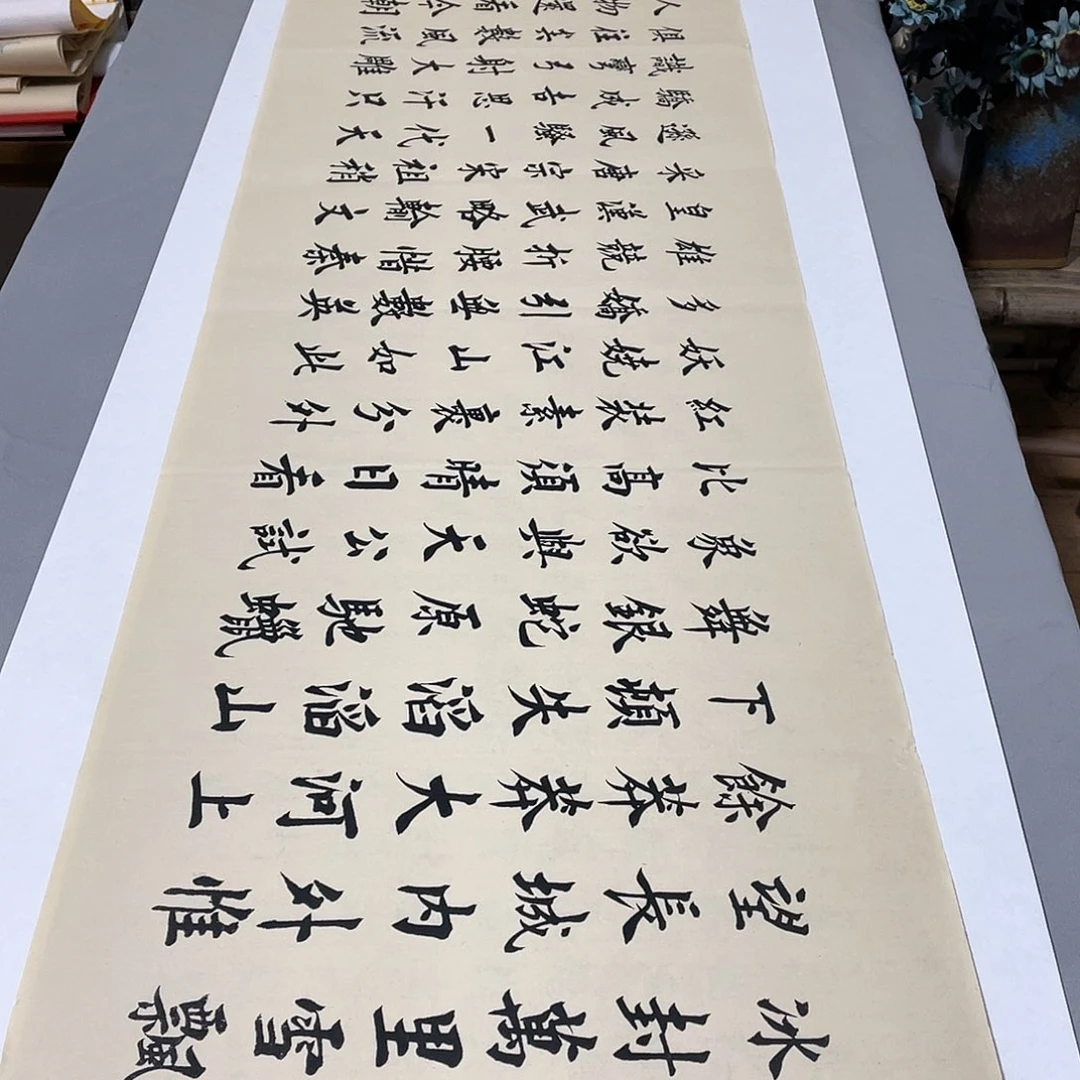 冰封萬里雪飄
望長城内外惟
餘莽莽大河上
下頓失滔滔山
舞銀蛇原馳蠟
象欲與天公試
比高須晴日看
紅裝素裹分外
妖嬈江山如此
多嬌引無數英
雄競折腰惜秦
皇漢武略輸文
采唐宗宋祖稍
遜風騷一代天
驕成吉思汗只
識彎弓射大雕
俱往矣數風流
人物還看今朝